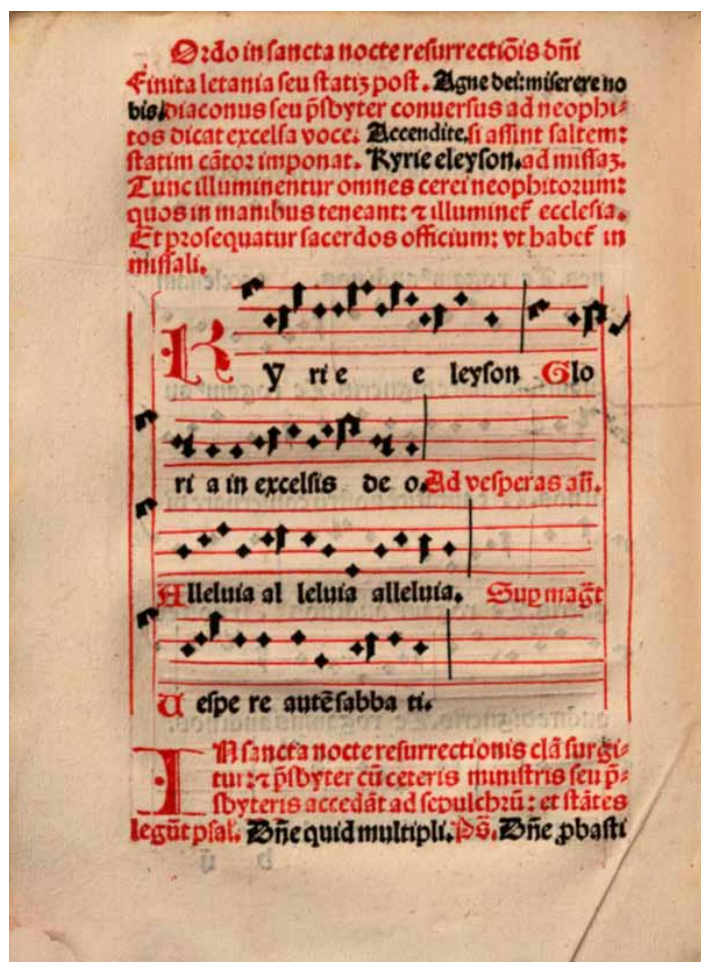 Ordo in sancta nocte resurrectiõis dñi
Finita letania seu statiʒ post. Agne dei: miserere no
bis. diaconus seu p̃sbyter conuersus ad neophi-
tos dicat excelsa voce. Accendite. si assint saltem:
statim cãtor imponat. Kyrie eleyson. ad missaʒ.
Tunc illuminentur omnes cerei neophitorum:
quos in manibus teneant: ⁊ illuminet᷑ ecclesia.
Et prosequatur sacerdos officium: vt habet᷑ in
missali.
K y ri e e leyson Glo
ri a in excelsis de o. Ad vesperas añ.
Alleluia al leluia alleluia. Sup magt̃
U espe re autẽ sabba ti.
IN sancta nocte resurrectionis clã surgi-
tur: ⁊ p̃sbyter cũ ceteris ministris seu p̃-
sbyteris accedãt ad sepulchrũ: et stãtes
legũt psal. Dñe quid multipli. Ps̃. Dñe ꝓbasti